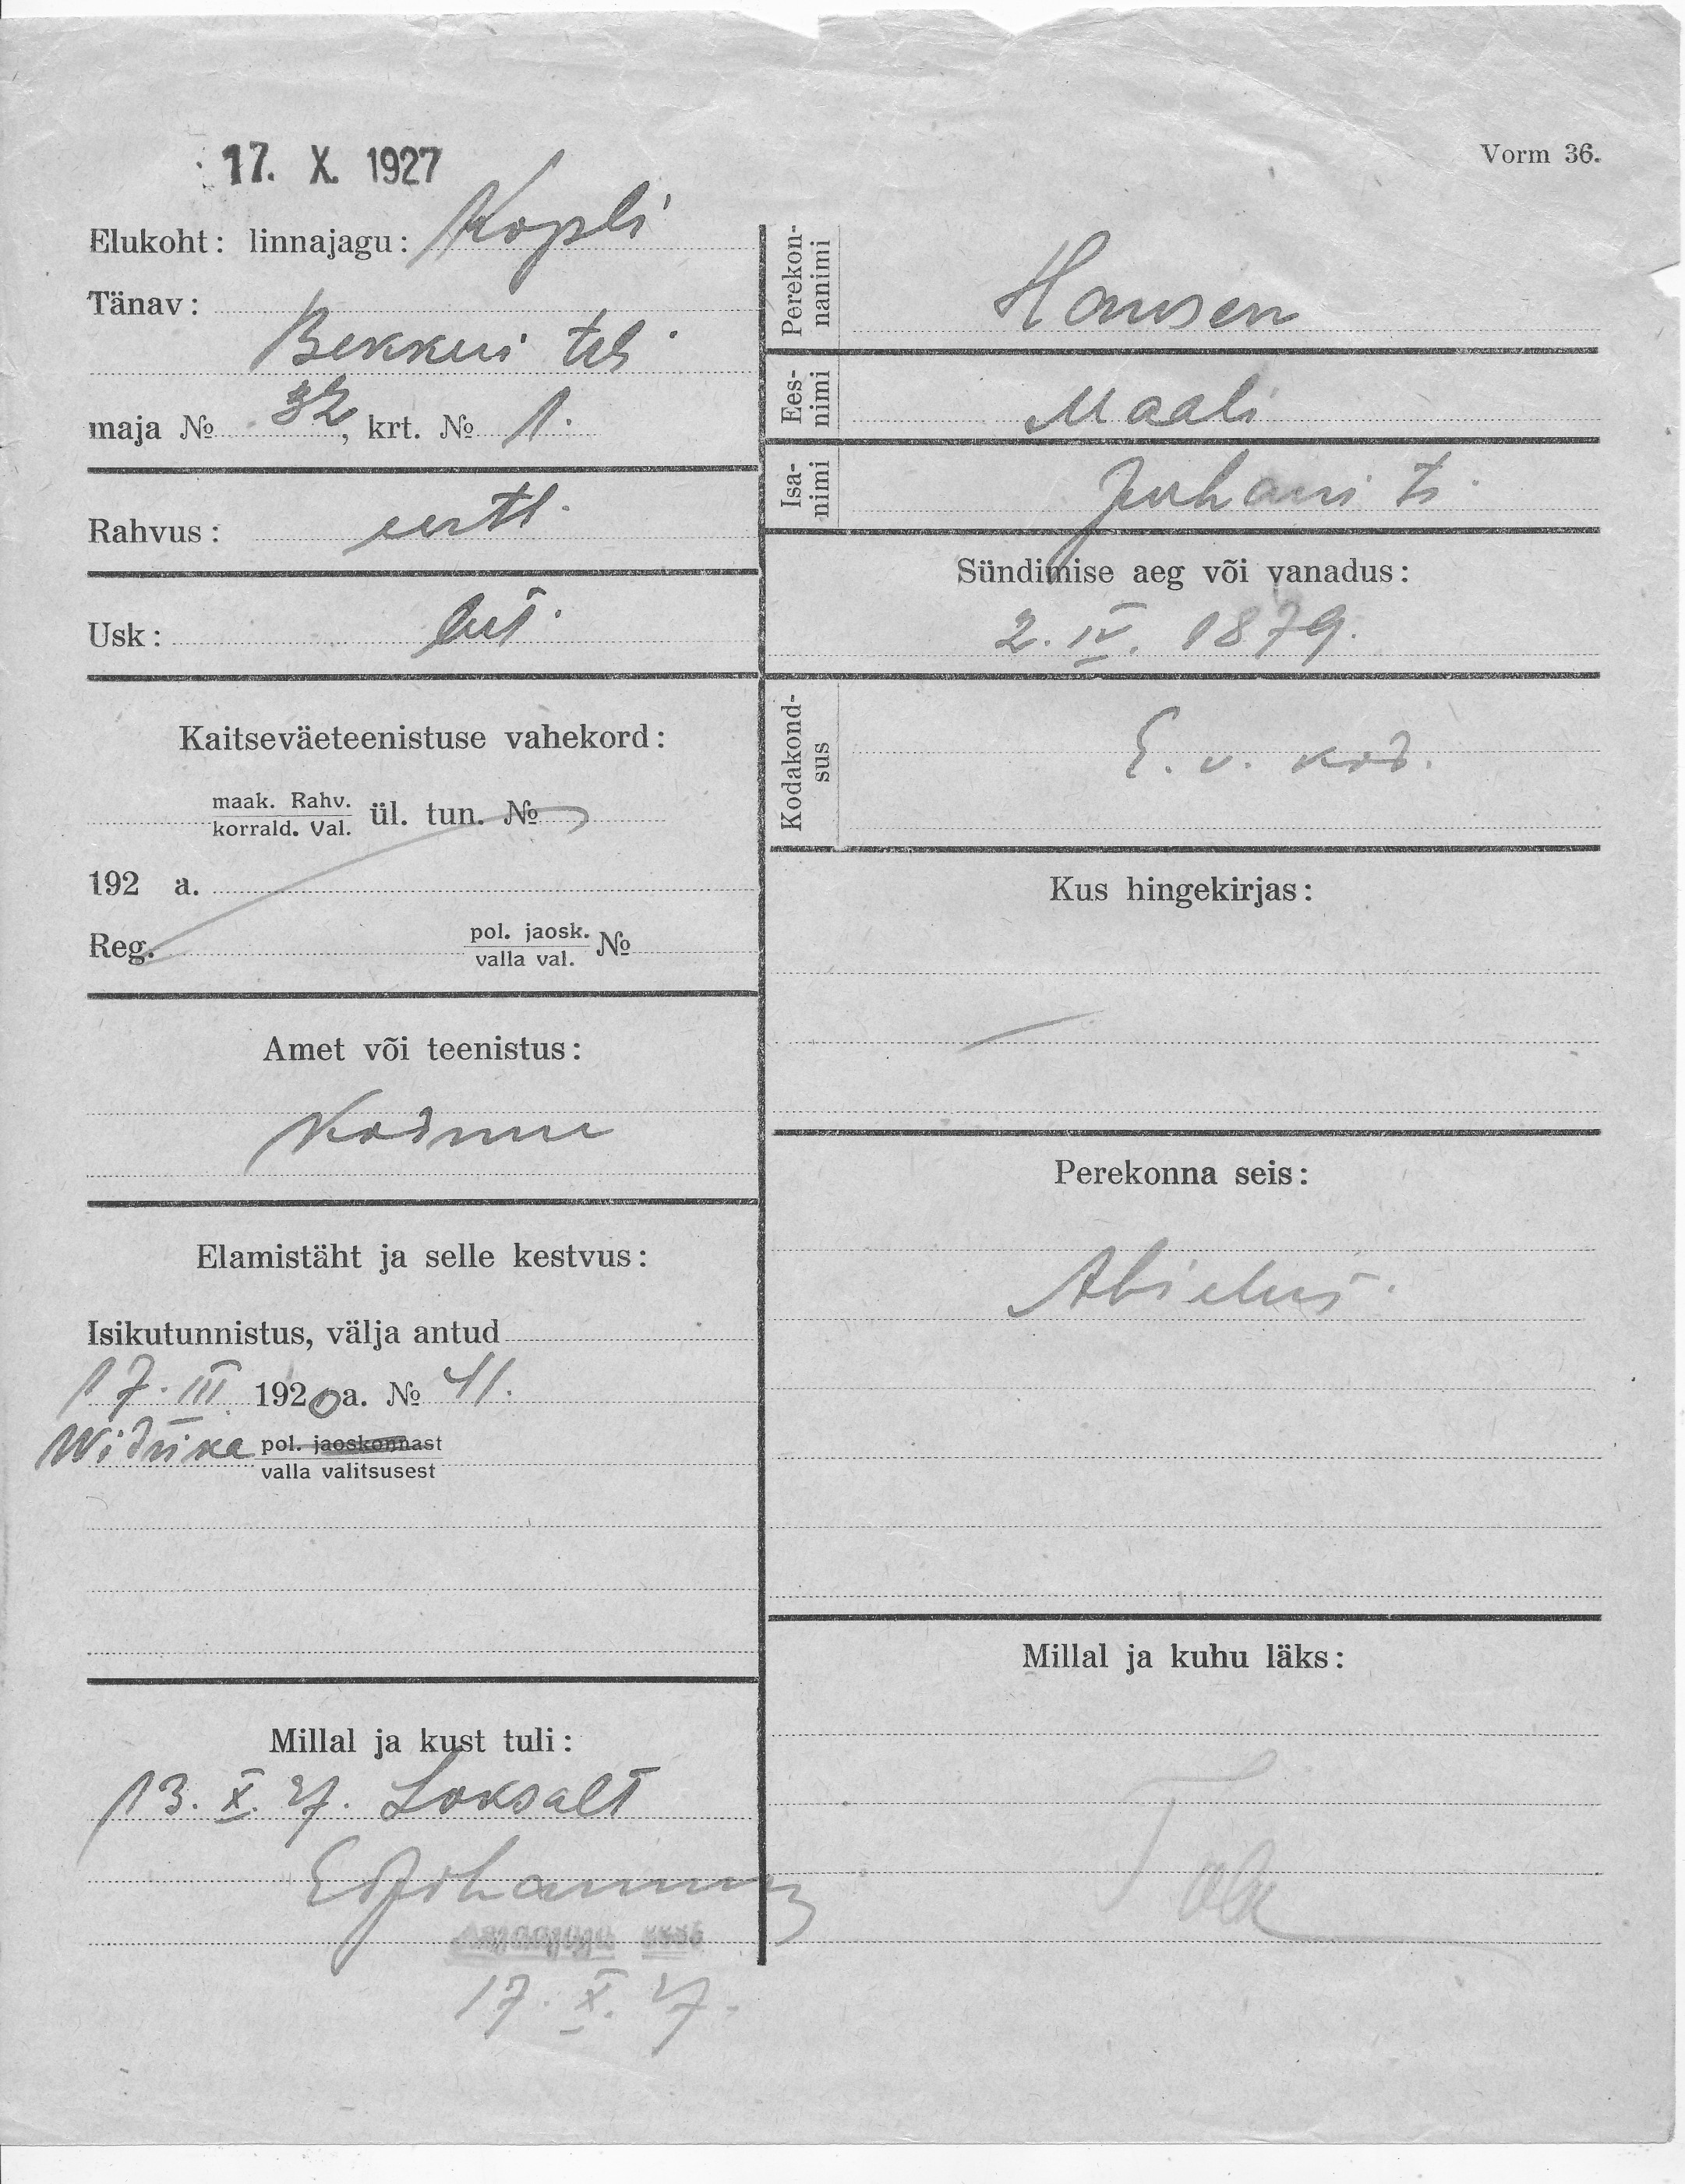 17. X. 1927
Vorm 36.
Elukoht: linnajagu: Kopli
Tänav:
Bekkeri teh.
maja № 32, krt. № 1.
Rahvus: eestl.
Usk: lut.
Kaitseväeteenistuse vahekord:
maak. Rahv.
korrald. Val. ül. tun. №
192 a.
Reg. pol. jaosk. №
valla val.
Amet või teenistus:
Kodune
Elamistäht ja selle kestvus:
Isikutunnistus, välja antud
17. III 1920 a. № 41.
pol. jaoskonnast
valla valitsusest
Millal ja kust tuli:
13. X. 27. Loksalt
17. X. 27.
Perekon-
nanimi Hansen
Ees-
nimi Maali
Isa-
nimi Juhani t.
Sündimise aeg või vanadus:
2. IV. 1879.
Kodakond-
sus E. v. kod.
Kus hingekirjas:
Perekonna seis:
Abielus.
Millal ja kuhu läks: